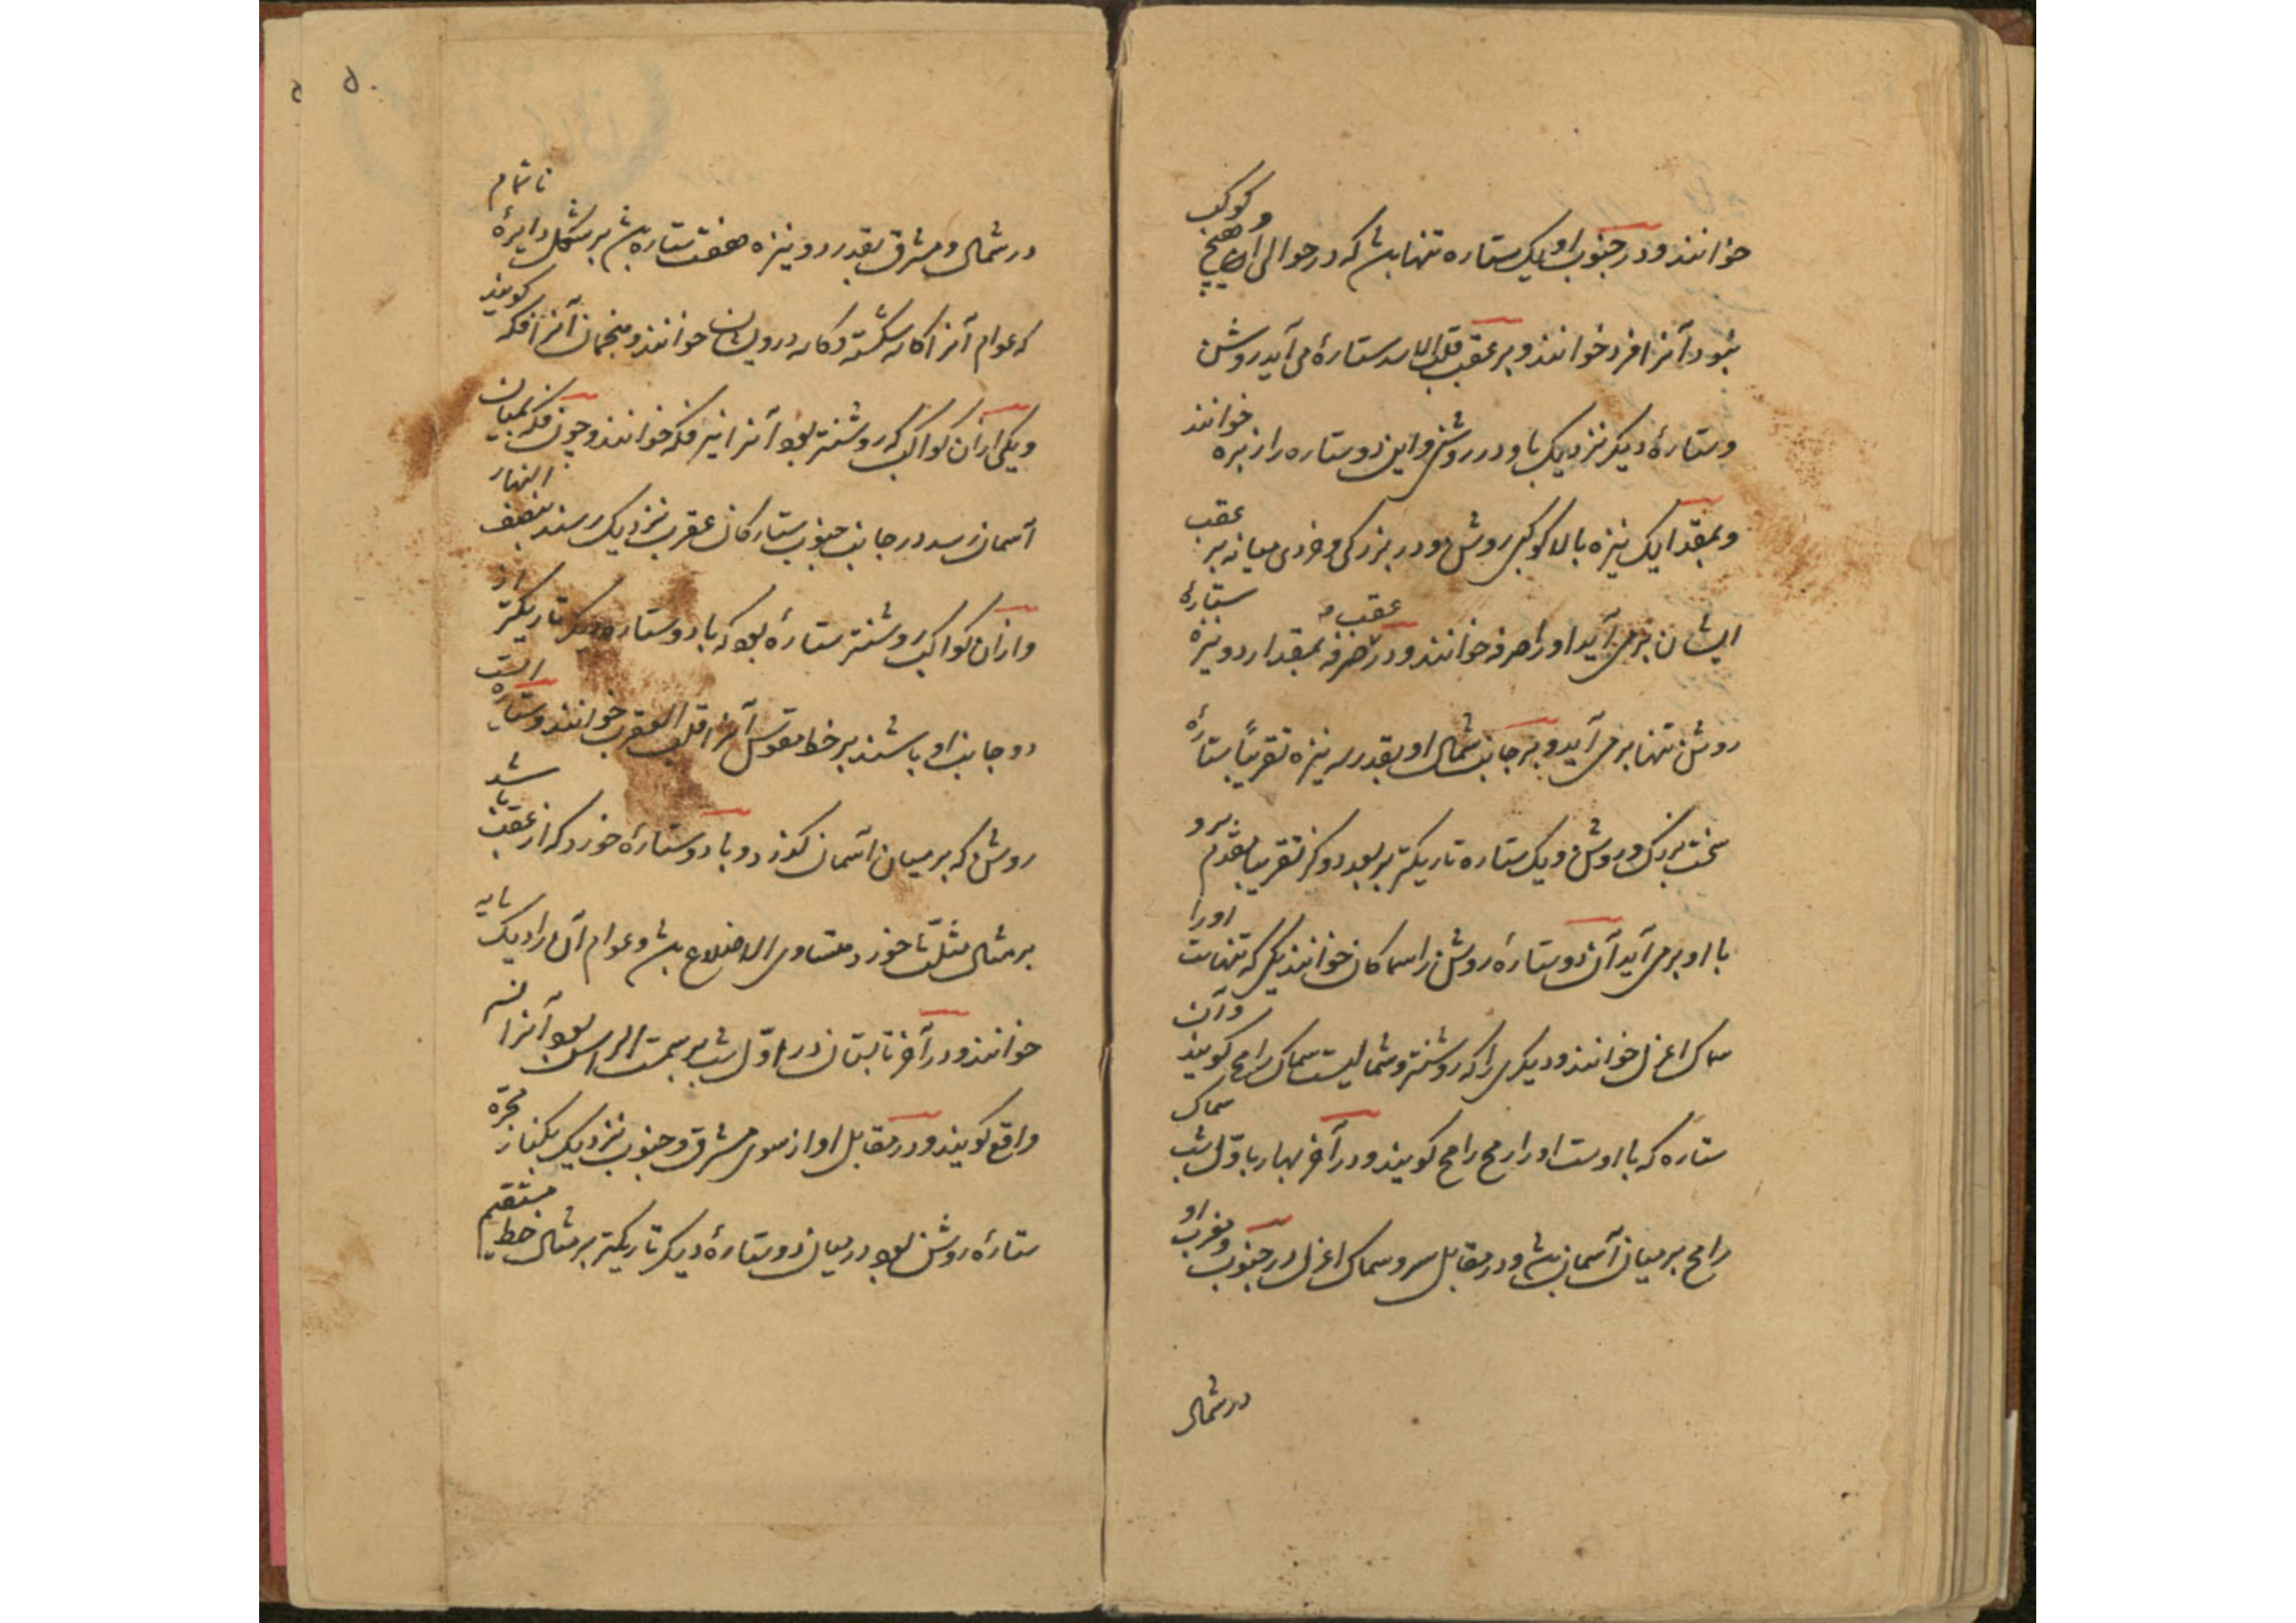 خوانند و در جنوب او یک ستاره تنها باشد که در حوالی او هیچ کوکب
نبود آنرا فرد خوانند و بر عقب قلب الاسد ستارهٔ می آید روشن
و ستارهٔ دیگر نزدیک باو در روشنی و این دو ستاره را زبره خوانند
و بمقدار یک نیزه بالا کوکبی روشن و در بزرگی و خردی میانه بر عقب
ایشان برمی آید او را صرفه خوانند و در عقب صرفه بمقدار دو نیزه ستارهٔ
روشن تنها برمی آید و بر جانب شمال او بقدر سه نیزه تقریباً ستارهٔ
سخت بزرگ و روشن و یک ستاره تاریکتر بر بعد دو گز تقریبا بقدم برو
با او برمی آید آن دو ستارهٔ روشن را سماکان خوانند یکی که تنهاست او را
سماک اعزل خوانند و دیگری را که روشنتر و شمالیست سماک رامح گویند و آن
ستاره که با اوست او را رمح رامح گویند و در آخر بهار باوّل شب سماک
رامح بر میان آسمان باشد و در مقابل سر و سماک اعزل در جنوب و مغرب او
در شمال
۵۰
در شمال و مشرق بقدر دو نیزه هفت ستاره باشد بر شکل دایرهٔ ناتمام
که عوام آنرا کاسه شکسته و کاسه درویشان خوانند و منجمان آنرا فکه گویند
و یکی از آن کواکب که روشنتر بود آنرا نیر فکه خوانند و چون فکه بمیان
آسمان رسد در جانب جنوب ستارگان عقرب نزدیک رسند بنصف النهار
و از آن کواکب روشنتر ستارهٔ بود که با دو ستاره دیگر تاریکتر از
دو جانب او باشند بر خط مقوس آنرا قلب العقرب خوانند و ستاره است
روشن که بر میان آسمان گذرد و با دو ستارهٔ خورد که از عقب باشد
بر مثال مثلثی خورد متساوی الاضلاع باشد و عوام آن را دیک پایه
خوانند و در آخر تابستان در اوّل شب بر سمت الراس بود آنرا نسر
واقع گویند و در مقابل او از سوی مشرق و جنوب نزدیک بکنار مجرّه
ستارهٔ روشن بود در میان دو ستارهٔ دیگر تاریکتر بر مثال خط مستقیم